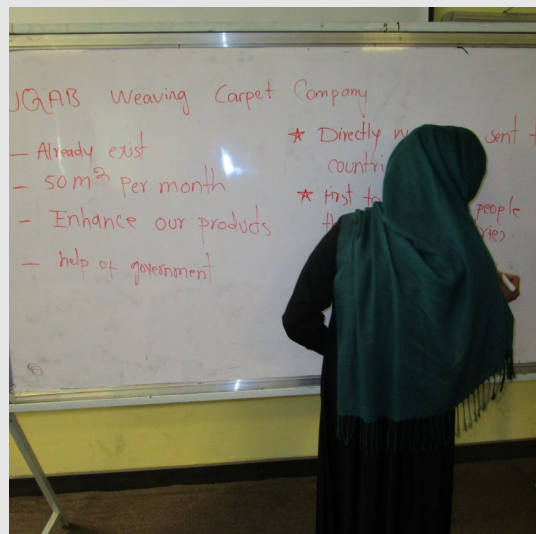 JQAB Weaving Carpet Company
– Already exist
– 50 m² Per month
– Enhance our products
– help of government
★ Directly sent
★ First people